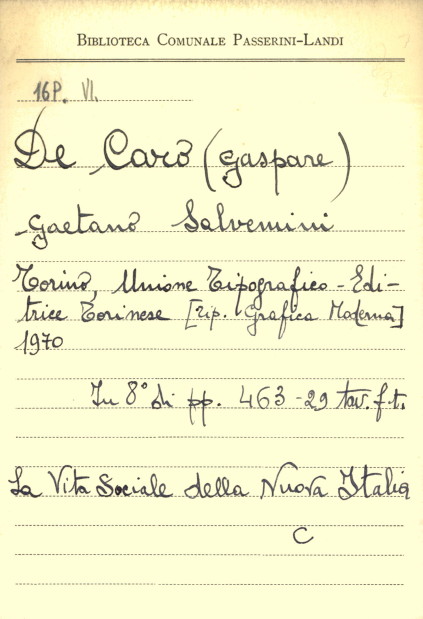 BIBLIOTECA COMUNALE PASSERINI-LANDI
16P. VI.
De Caro (Gaspare)
Gaetano Salvemini
Torino, Unione Tipografico-Edi-
trice Torinese [tip. Grafica Moderna]
1970
In 8° di pp. 463-29 tav. f.t.
La Vita Sociale della Nuova Italia
C